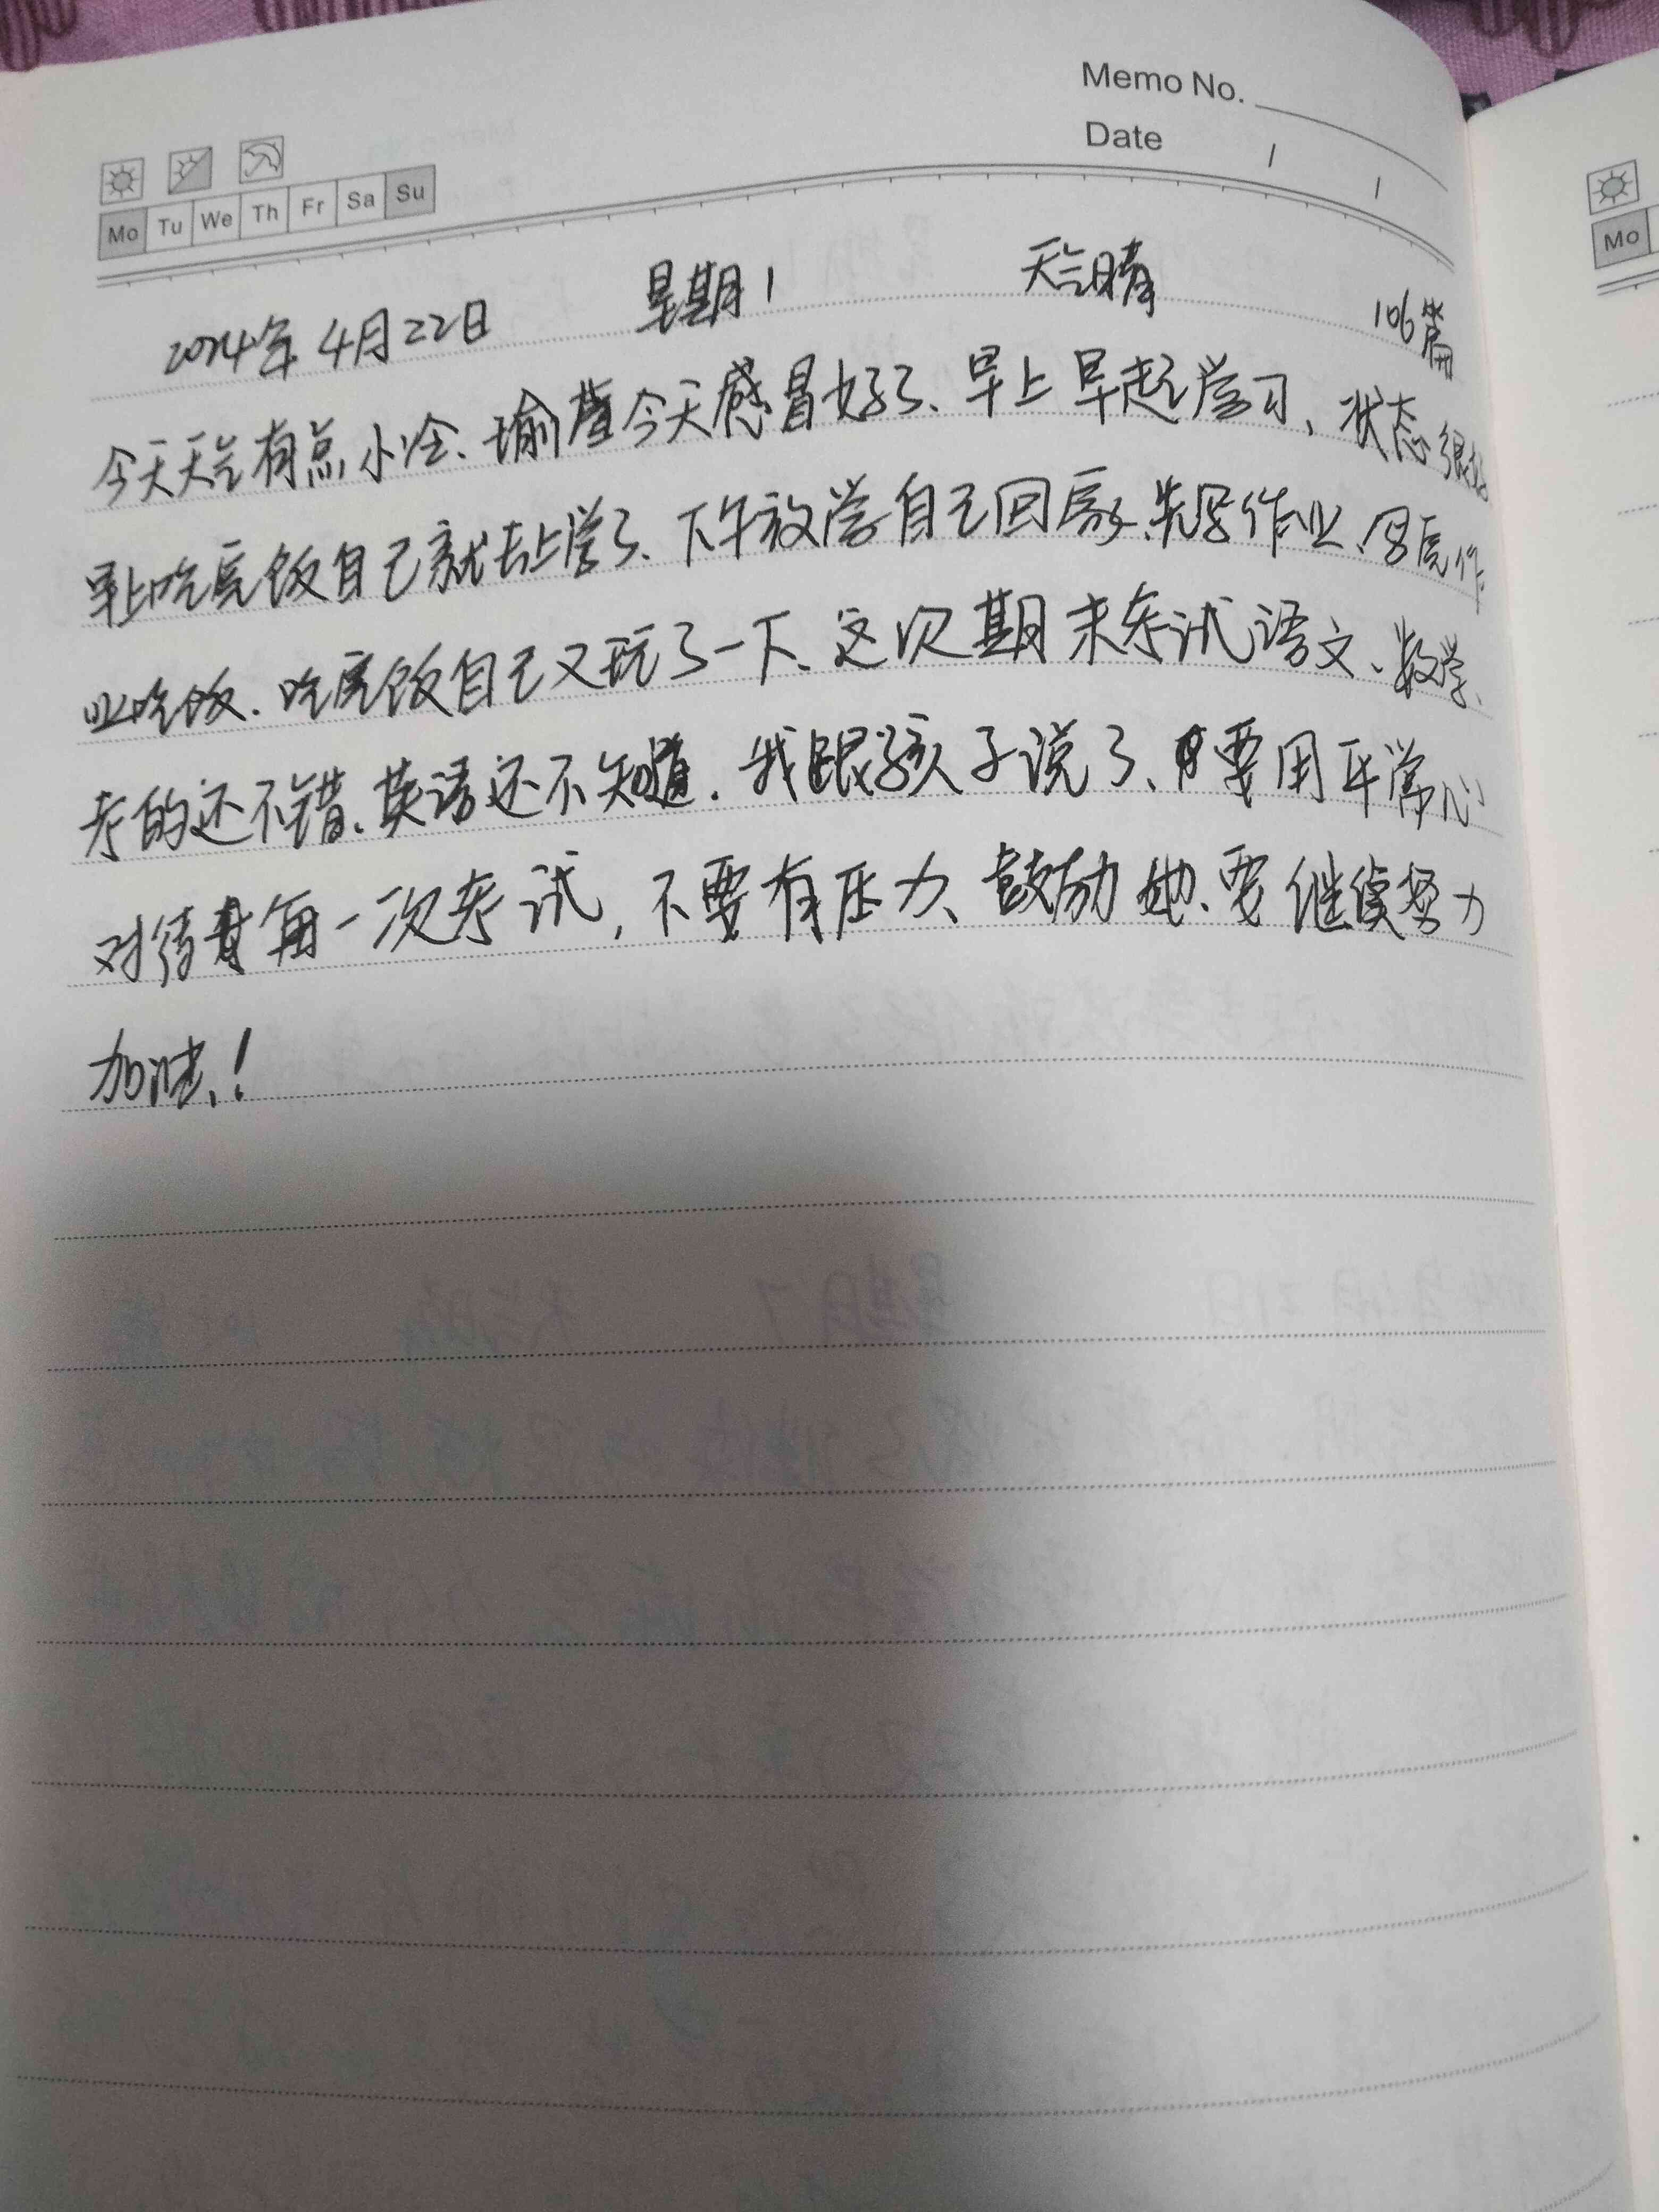 Memo No.
Date / /
Mo Tu We Th Fr Sa Su
Mo
2024年4月22日 星期1 天气晴 106篇
今天天气有点小冷、瑜萱今天感冒好了、早上早起学习、状态很好
早上吃完饭自己就去上学了、下午放学自己回家、先写作业、写完作
业吃饭.吃完饭自己又玩了一下、这次期末考试语文、数学、
考的还不错、英语还不知道.我跟孩子说了、要用平常心
对待每一次考试,不要有压力、鼓励她、要继续努力
加油、!